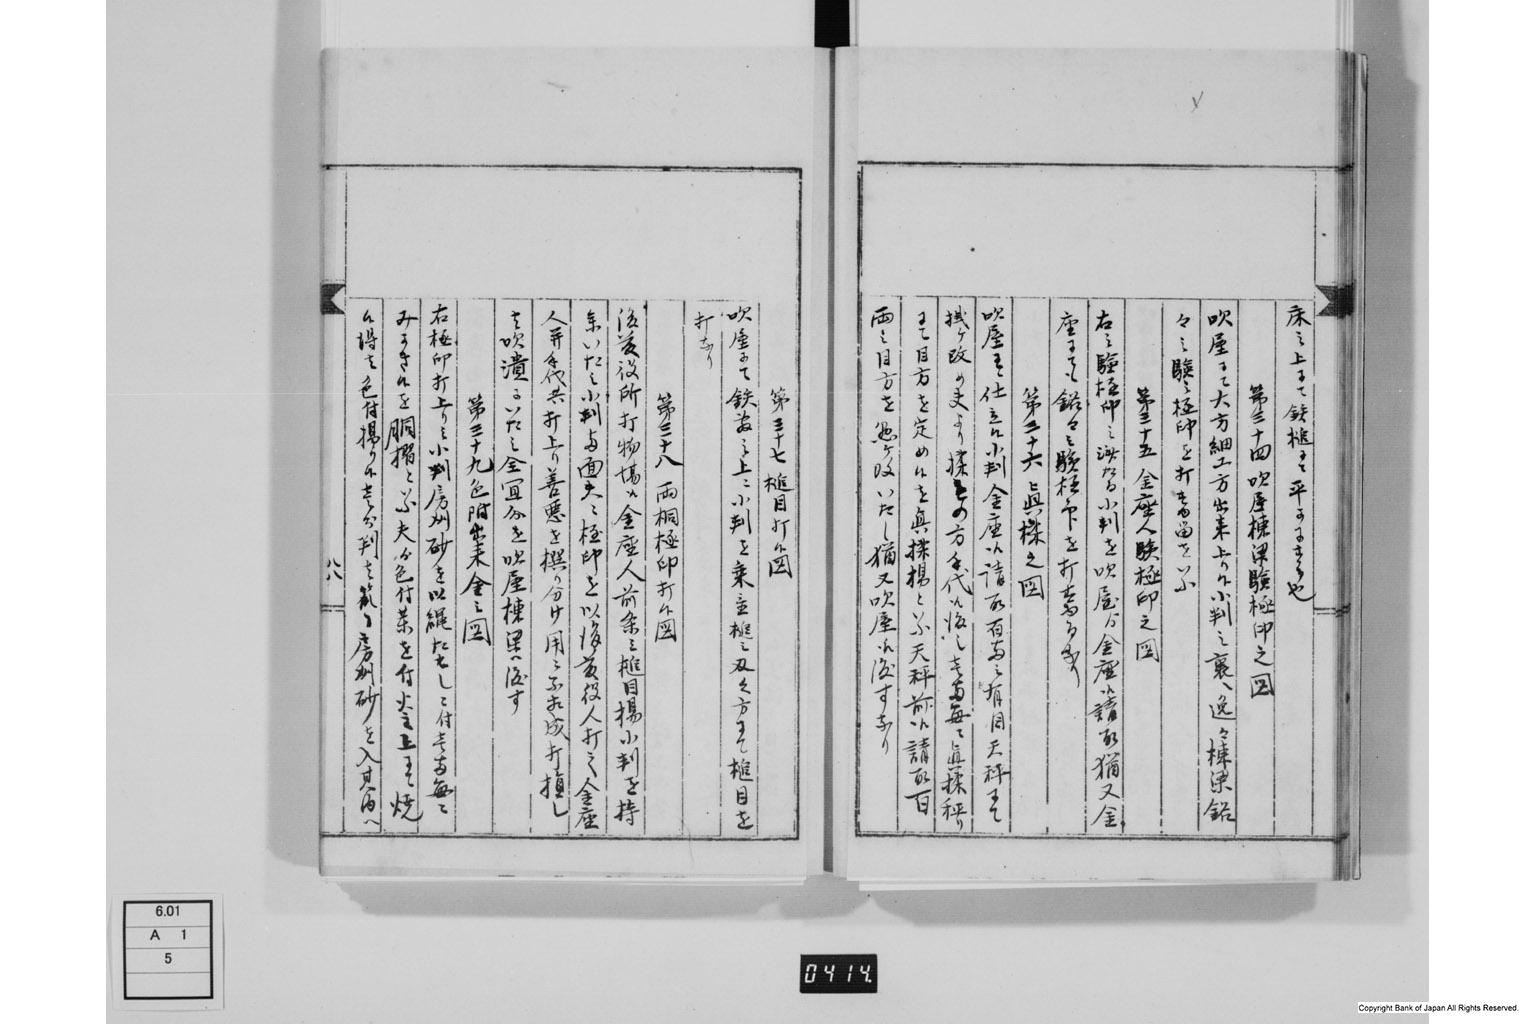 床之上にて鉄槌にて平にする也
第三十四 吹屋棟梁験極印之図
吹屋にて大方細工方出来上り候小判之裏へ逸々棟梁銘
々之験之極印を打
第三十五 金座人験極印之図
右之験極印之済たる小判を吹屋ゟ金座へ請取猶又金
座にても銘々之験極印を打
第三十六 真揉之図
吹屋にて仕立候小判金座へ請取百両之有目天秤にて
掛ケ改め夫より揉その方手代へ渡し壱両毎に真揉秤り
にて目方を定め候を真揉場と云天秤前へ請取百
両之目方を懸ケ改いたし猶又吹屋へ渡すなり
第三十七 槌目打候図
吹屋にて鉄敷之上に小判を乗主槌之刃之方にて槌目を
打なり
第三十八 両桐極印打候図
後藤役所打物場へ金座人前条之槌目場小判を持
参いたし小判与面夫々極印を以後藤役人打之金座
人并手代共打上り善悪を撰り分け用に不相成打損し
を吹潰にいたし全宜分を吹屋棟梁へ渡す
第三十九 色附出来金之図
右極印打上り之小判房州砂を以縄たわしに付壱両毎に
みかき候を胴摺と云夫ゟ色付薬を付火之上にて焼
候得は色付場
房州砂を入其内へ
八八
6.01
A 1
5
0414.
Copyright Bank of Japan All Rights Reserved.